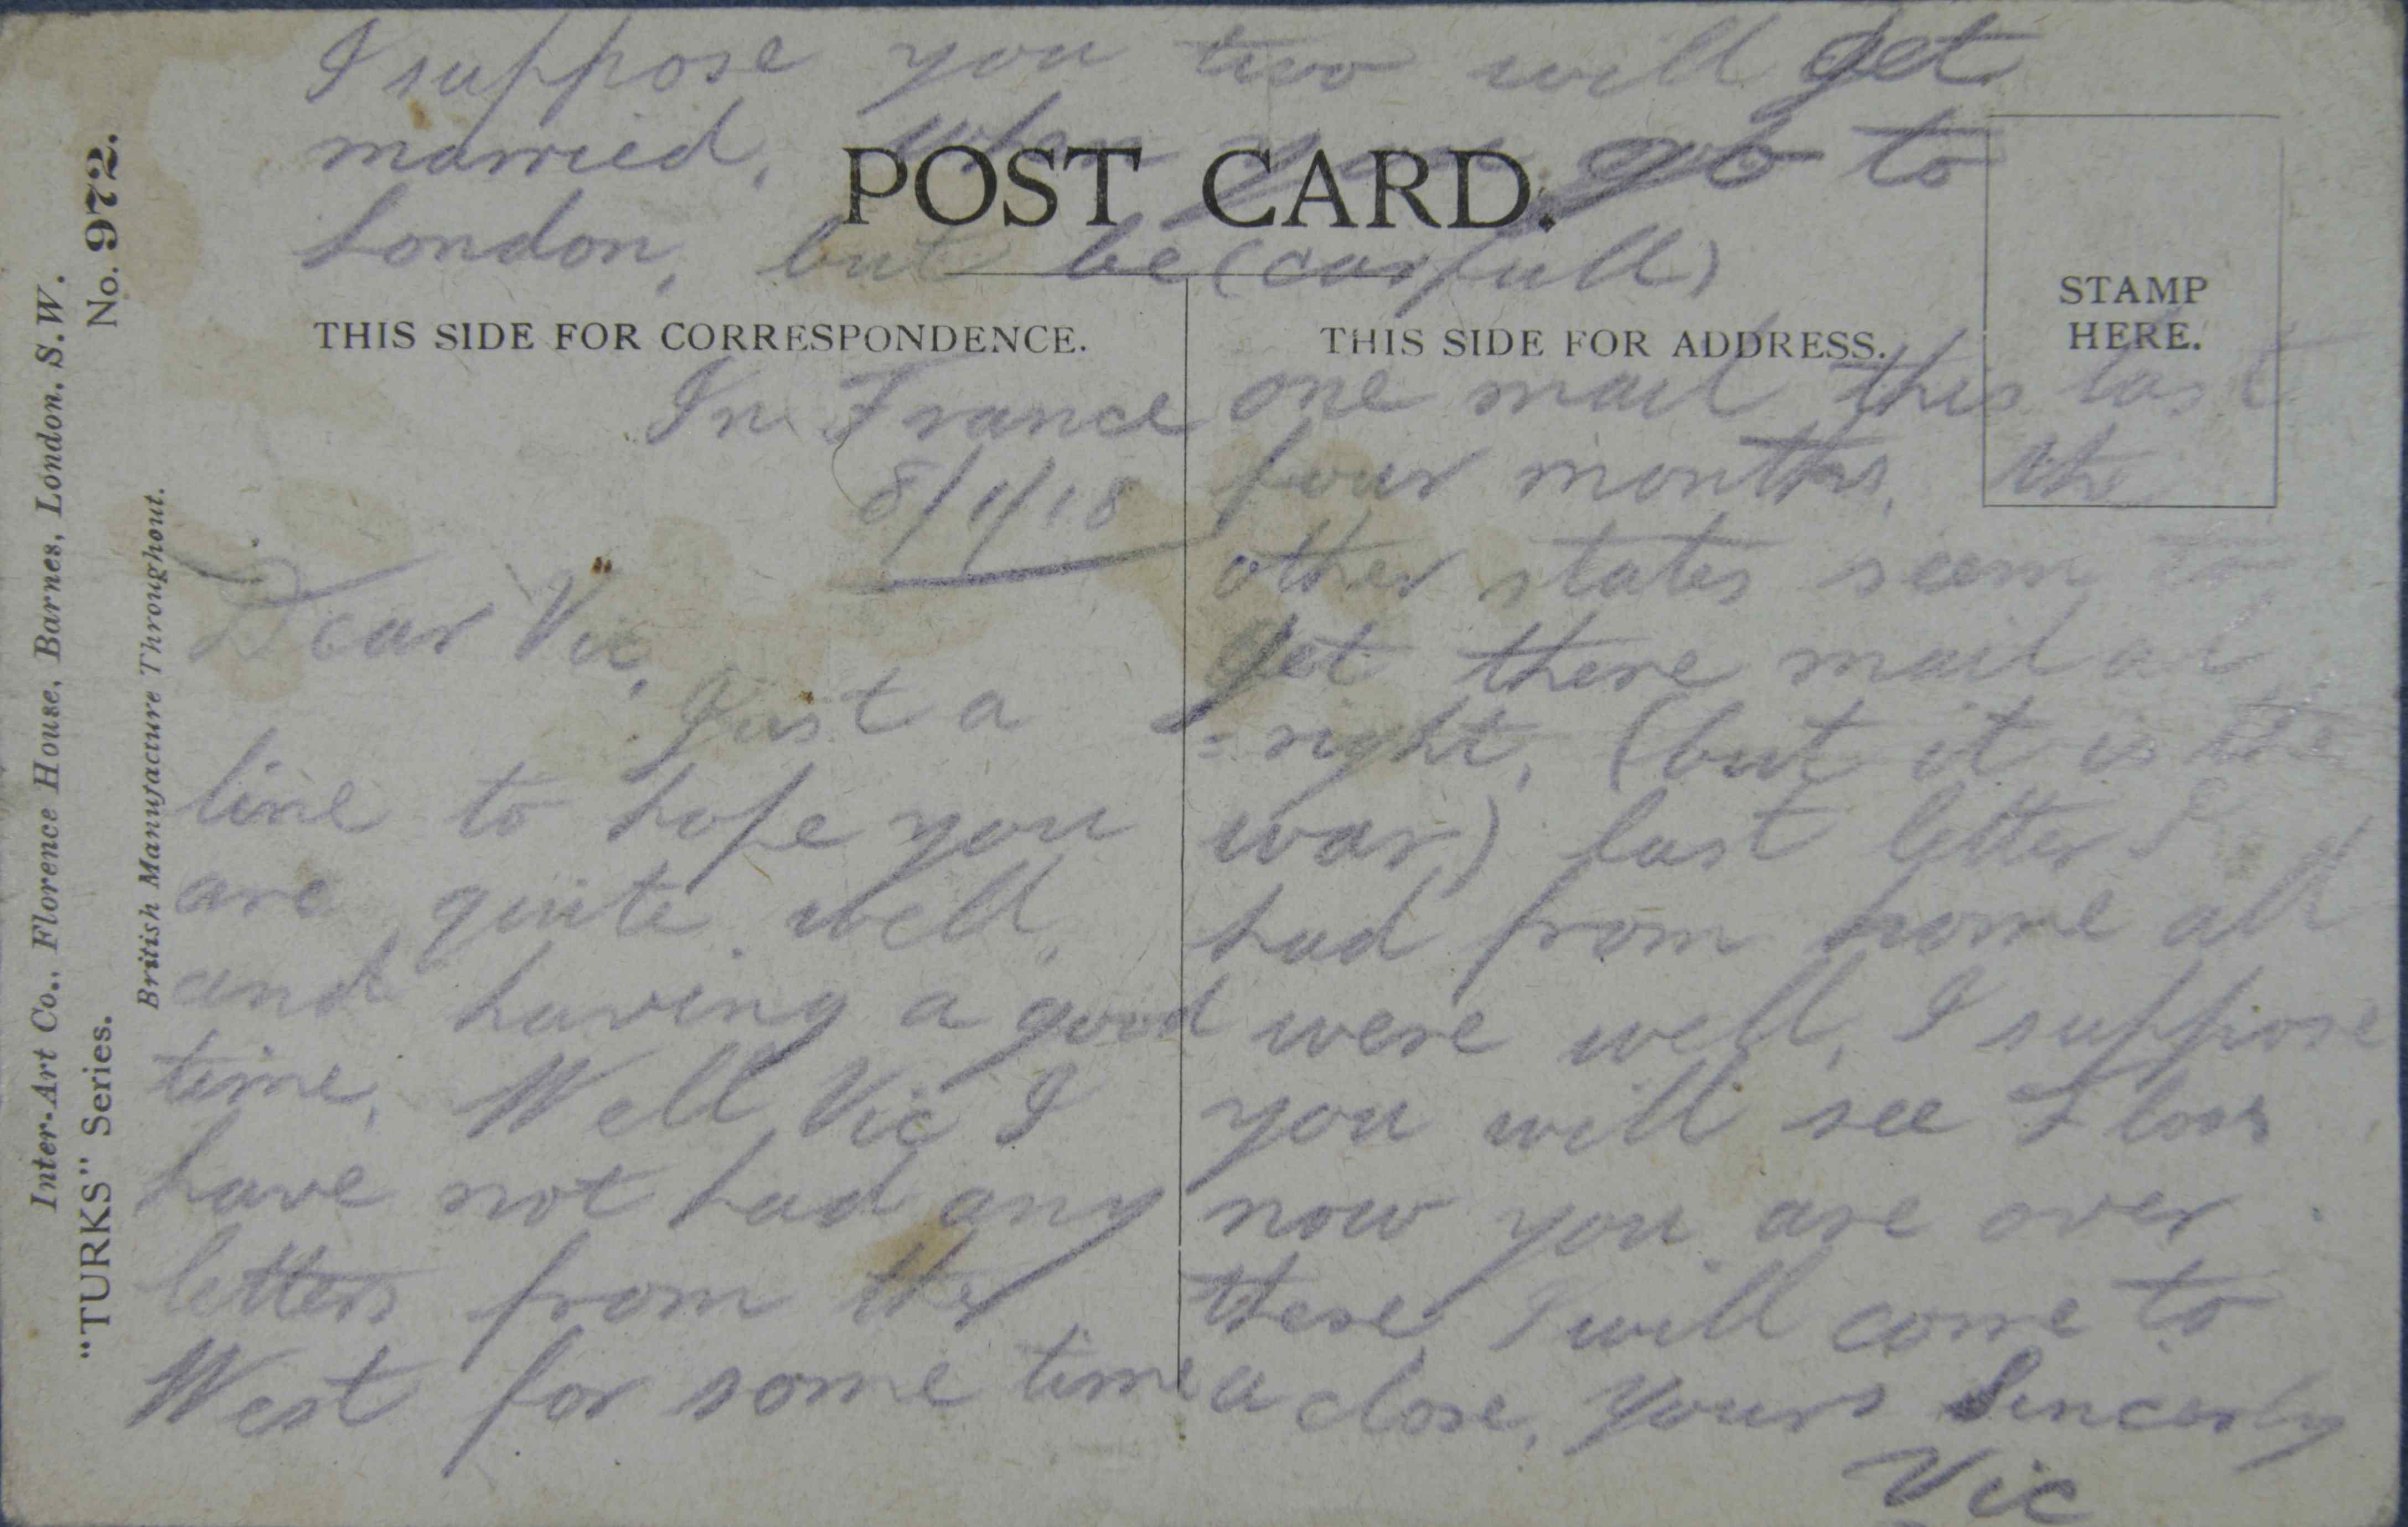 I suppose you two will get
married, when you go to
London, but be (carfull)
POST CARD.
THIS SIDE FOR CORRESPONDENCE.
THIS SIDE FOR ADDRESS.
STAMP
HERE.
In France
8/1/18
Dear Vic,
Just a
line to hope you
are quite well,
and having a good
time. Well Vic I
have not had any
letters from the
West for some time
one mail this last
four months, the
other states seem to
get there mail al
=right, (but it is the
war) last letter I
had from home all
were well, I suppose
you will see Floss
now you are over
there, I will come to
a close, Yours Sincerly
Vic
Inter-Art Co., Florence House, Barnes, London, S.W.
"TURKS" Series. No. 972.
British Manufacture Throughout.